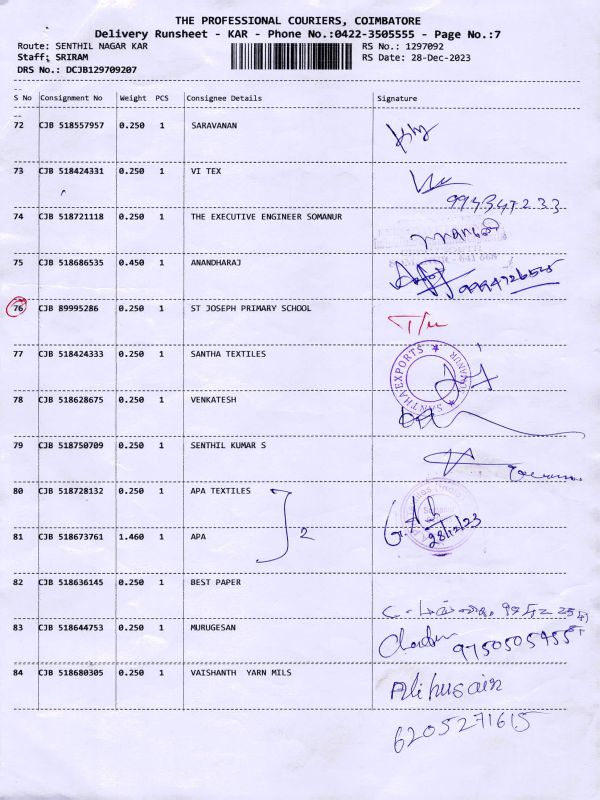 THE PROFESSIONAL COURIERS, COIMBATORE
Delivery Runsheet - KAR - Phone No.:0422-3505555 - Page No.:7
Route: SENTHIL NAGAR KAR
RS No.: 1297092
Staff: SRIRAM
RS Date: 28-Dec-2023
DRS No.: DCJB129709207
S No Consignment No Weight PCS Consignee Details Signature
72 CJB 518557957 0.250 1 SARAVANAN
73 CJB 518424331 0.250 1 VI TEX
74 CJB 518721118 0.250 1 THE EXECUTIVE ENGINEER SOMANUR
75 CJB 518686535 0.450 1 ANANDHARAJ
76 CJB 89995286 0.250 1 ST JOSEPH PRIMARY SCHOOL
77 CJB 518424333 0.250 1 SANTHA TEXTILES
SANTHA EXPORTS
78 CJB 518628675 0.250 1 VENKATESH
79 CJB 518750709 0.250 1 SENTHIL KUMAR S
80 CJB 518728132 0.250 1 APA TEXTILES
81 CJB 518673761 1.460 1 APA 2 28/12/23
82 CJB 518636145 0.250 1 BEST PAPER
83 CJB 518644753 0.250 1 MURUGESAN
9750505955
84 CJB 518680305 0.250 1 VAISHANTH YARN MILS
Alihusain
6205271615